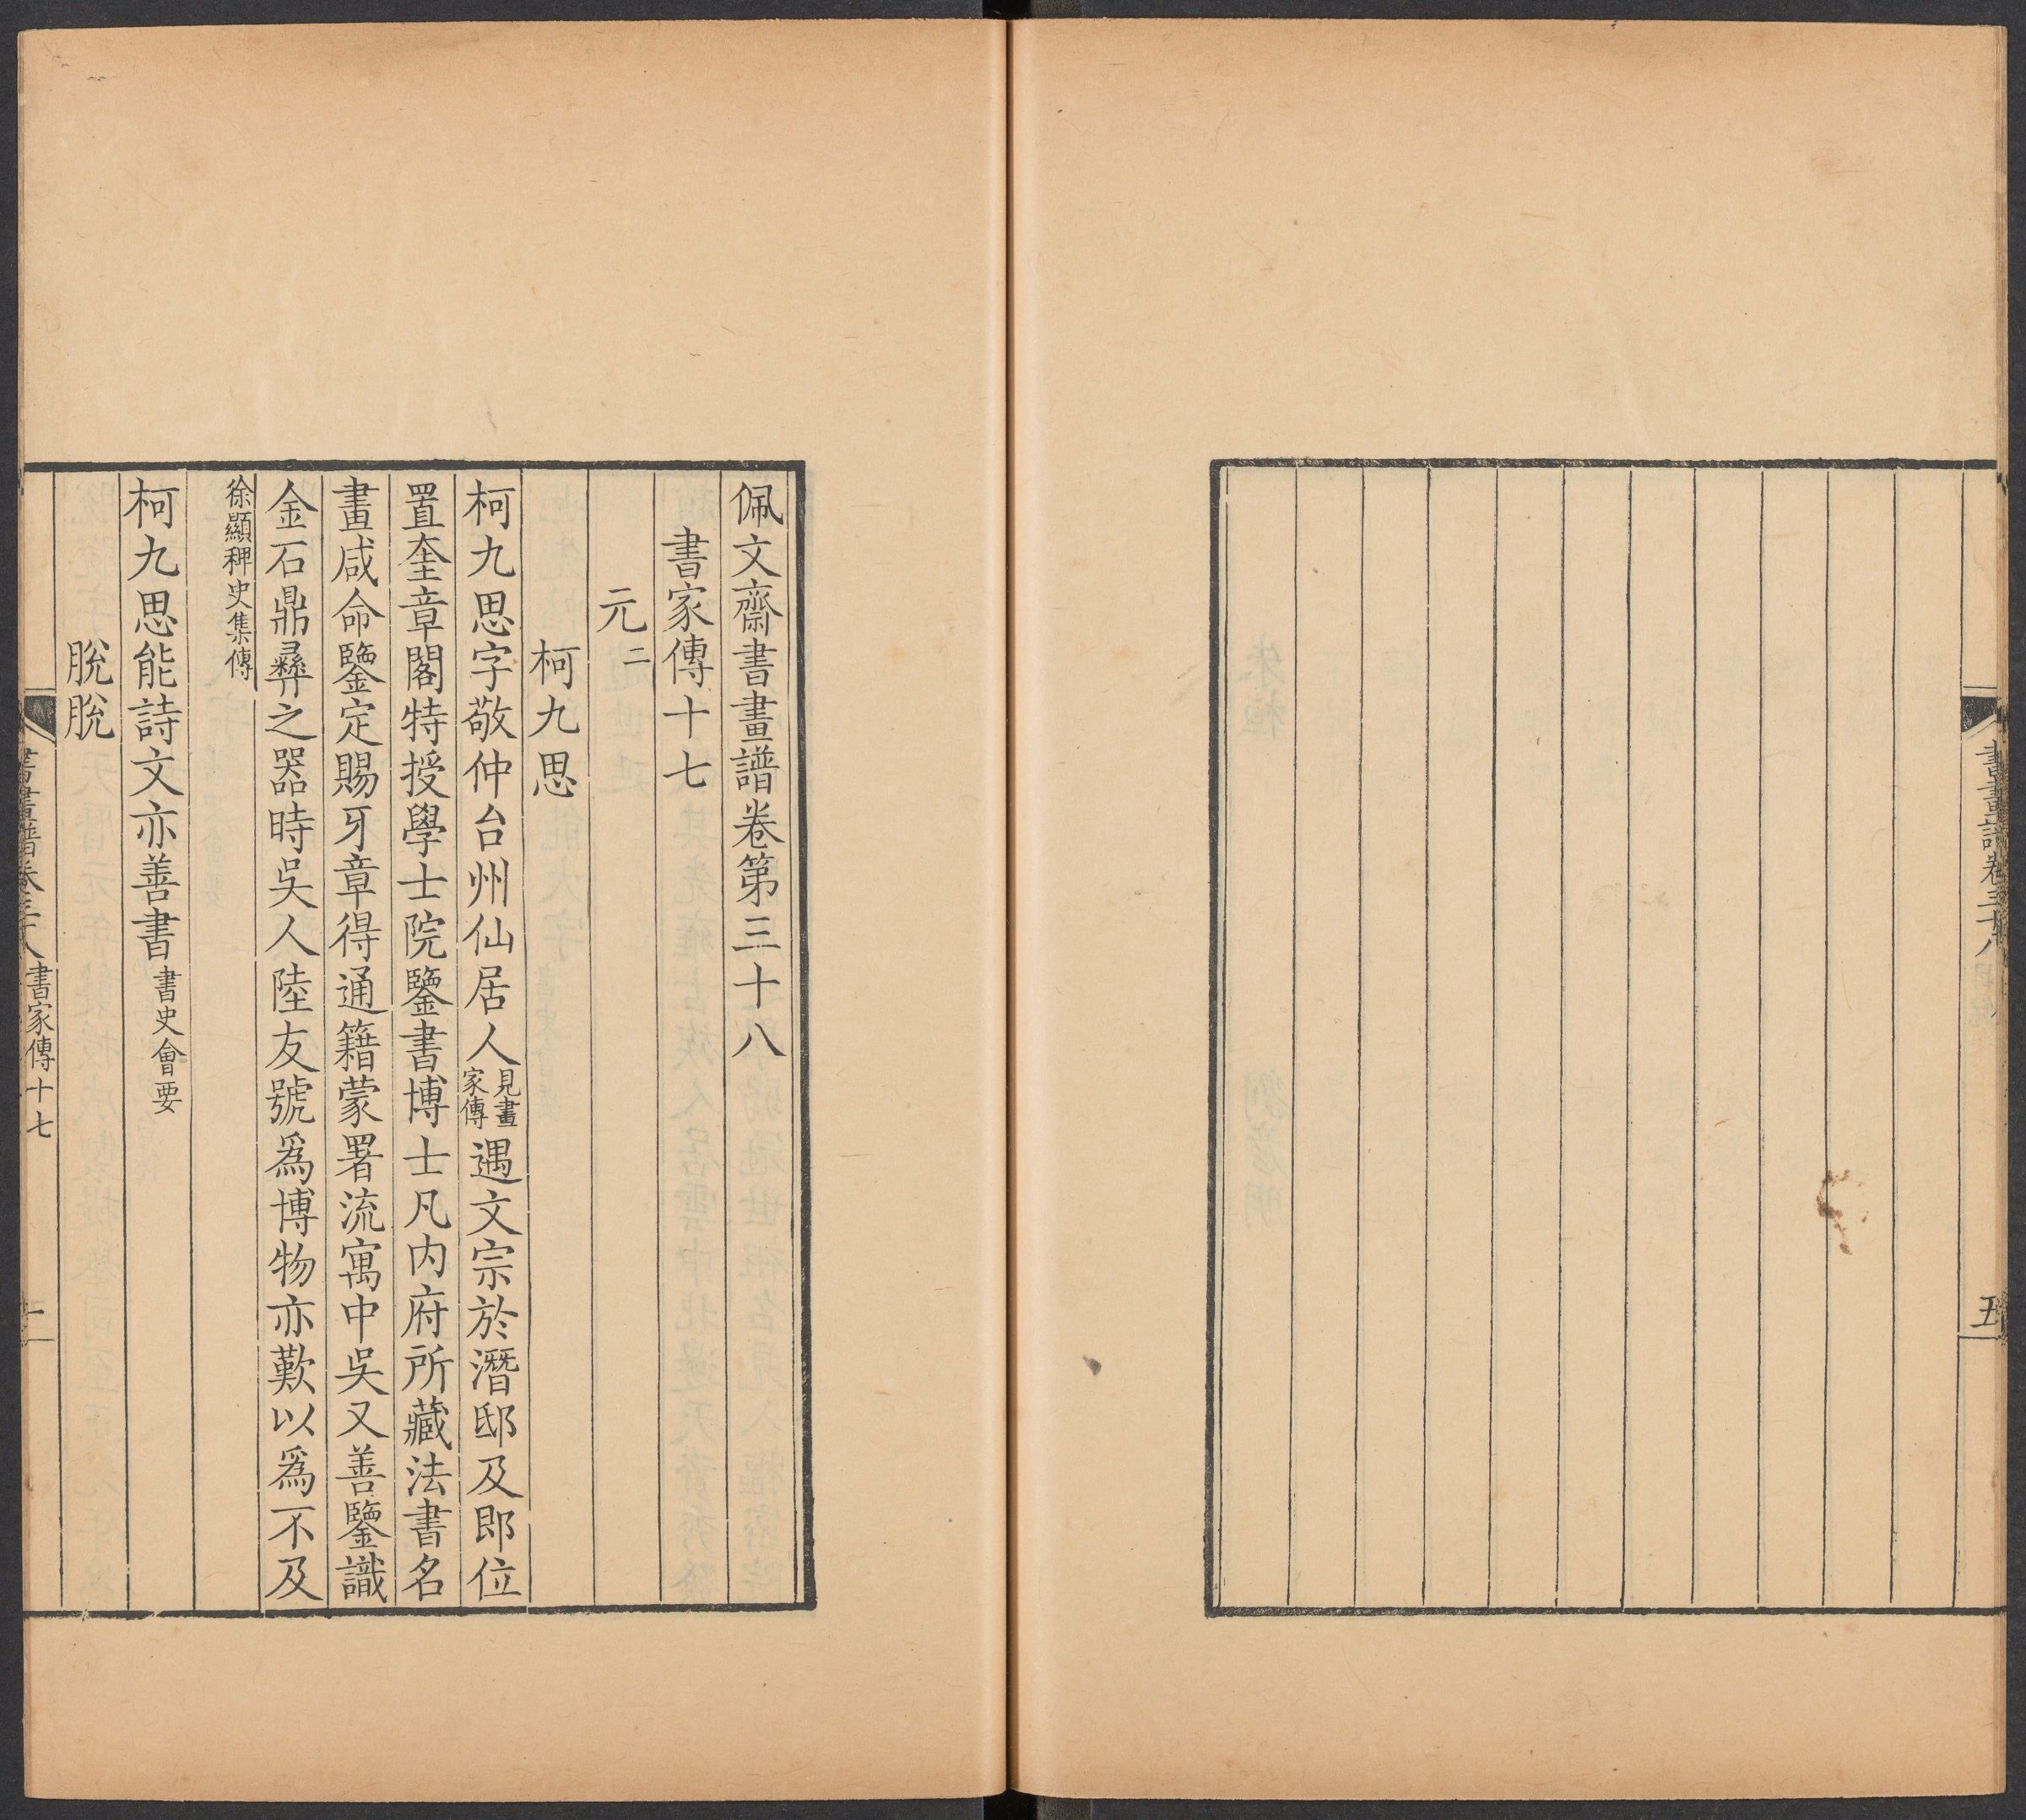 書畫譜卷三十八
五
佩文齋書畫譜卷第三十八
書家傳十七
元二
柯九思
柯九思字敬仲台州仙居人見畫家傳遇文宗於潛邸及即位
置奎章閣特授學士院鑒書博士凡内府所藏法書名
畫咸命鑒定賜牙章得通籍蒙署流寓中吳又善鑒識
金石鼎彝之器時吳人陸友號爲博物亦歎以爲不及
徐顯稗史集傳
柯九思能詩文亦善書書史會要
脫脫
書畫譜卷三十八 書家傳十七
一